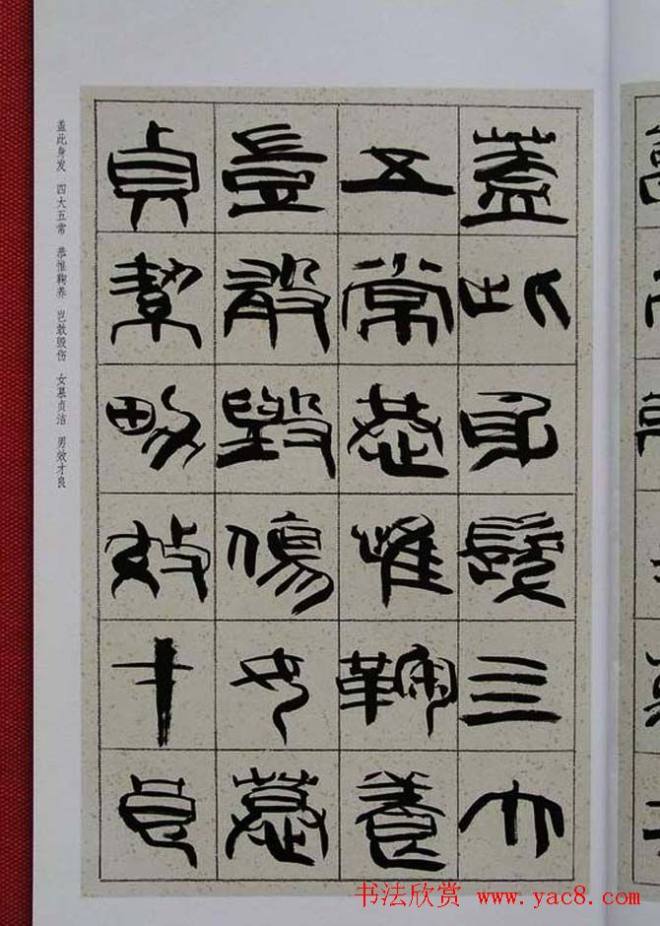 蓋此身髮四大
五常恭惟鞠養
豈敢毀傷女慕
貞絜男效才良
盖此身发 四大五常 恭惟鞠养 岂敢毁伤 女慕贞洁 男效才良
书法欣赏 www.yac8.com